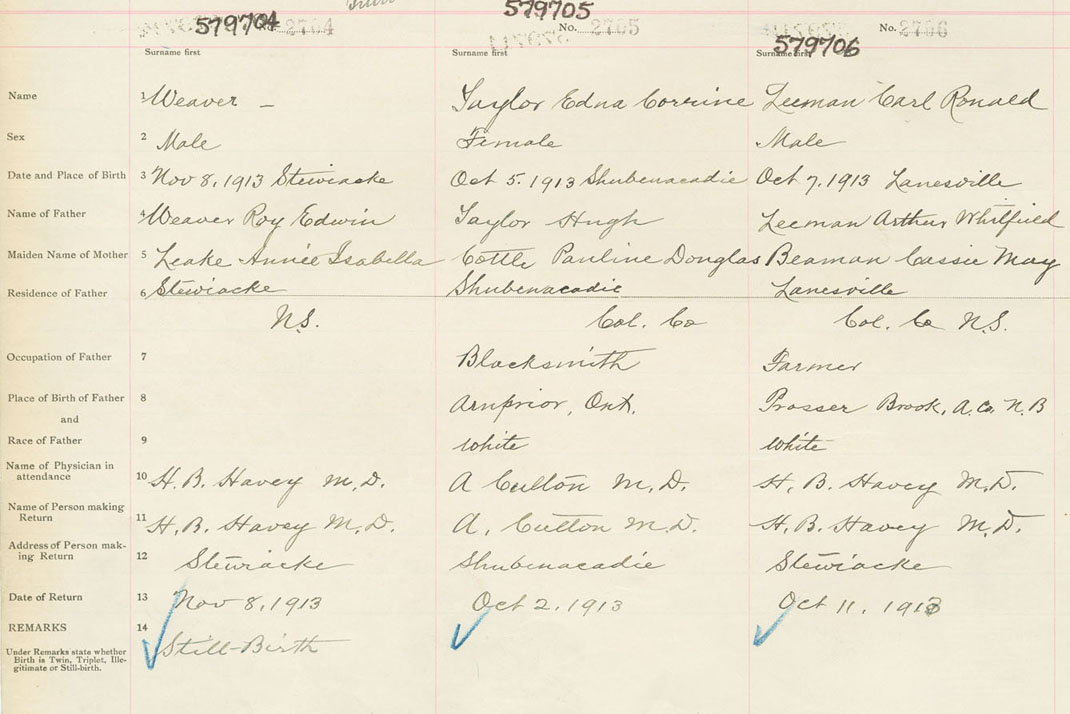 579704 No. 2704 579705 No. 2705 579706 No. 2706
Surname first Surname first Surname first
Name 1 Weaver — Taylor Edna Corrine Leeman Carl Ronald
Sex 2 Male Female Male
Date and Place of Birth 3 Nov 8, 1913 Stewiacke Oct 5. 1913 Shubenacadie Oct 7, 1913 Lanesville
Name of Father 4 Weaver Roy Edwin Taylor Hugh Leeman Arthur Whitfield
Maiden Name of Mother 5 Leake Annie Isabella Cottle Pauline Douglas Beaman Cassie May
Residence of Father 6 Stewiacke Shubenacadie Lanesville
N.S. Col. Co Col. Co N.S.
Occupation of Father 7 Blacksmith Farmer
Place of Birth of Father 8 Arnprior, Ont. Prosser Brook, A. Co. N. B
and
Race of Father 9 white white
Name of Physician in
attendance 10 H. B. Havey M. D. A M. D. H. B. Havey M. D.
Name of Person making
Return 11 H. B. Havey M. D. A. M. D. H. B. Havey M. D.
Address of Person mak-
ing Return 12 Stewiacke Shubenacadie Stewiacke
Date of Return 13 Nov 8, 1913 Oct 2, 1913 Oct 11, 1913
REMARKS 14 Still-Birth
Under Remarks state whether
Birth is Twin, Triplet, Ille-
gitimate or Still-birth.